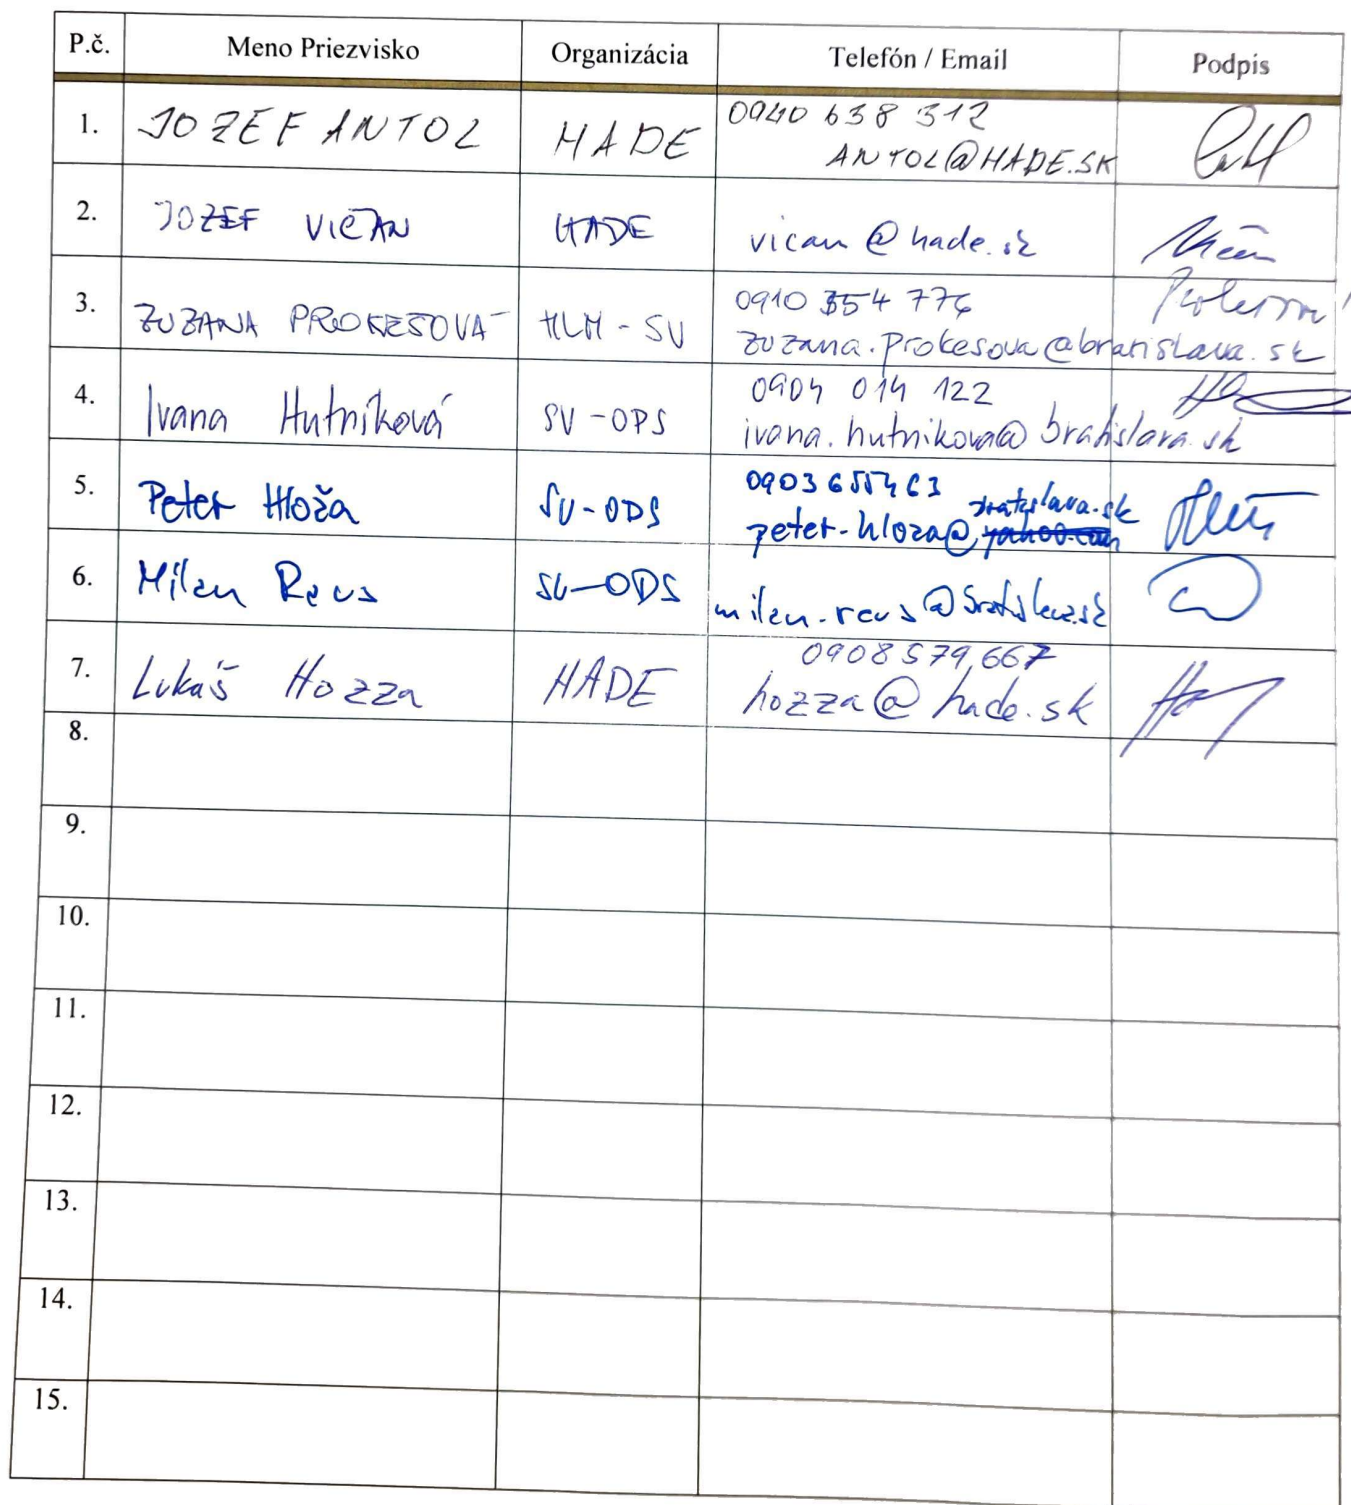 P.č. Meno Priezvisko Organizácia Telefón / Email Podpis
1. JOZEF ANTOL HADE 0940 638 312
ANTOL@HADE.SK
2. JOZEF VIČAN HADE vican@hade.sk
3. ZUZANA PROKEŠOVÁ HLM - SV 0910 354 776
zuzana.prokesova@bratislava.sk
4. Ivana Hutníková SV - OPS 0904 014 122
ivana.hutnikova@bratislava.sk
5. Peter Hloža SV-ODS 0903 655463
bratislava.sk
peter.hloza@yahoo.com
6. Milan Reus SV-ODS milan.reus@bratislava.sk
7. Lukáš Hozza HADE 0908 579,667
hozza@hade.sk
8.
9.
10.
11.
12.
13.
14.
15.